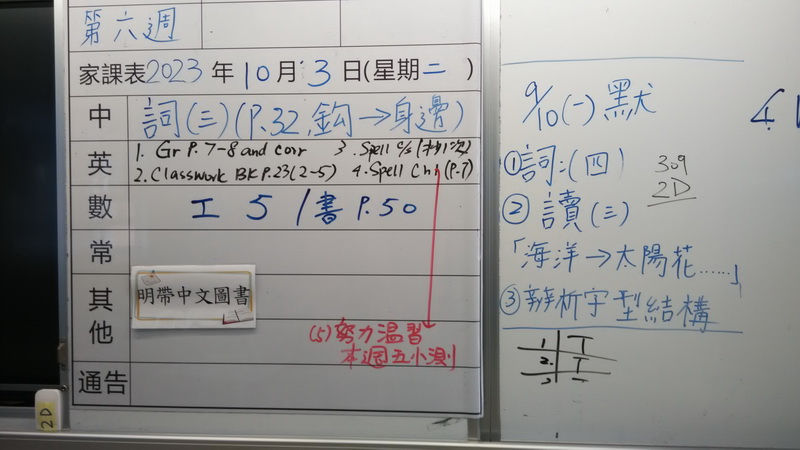 第六週
家課表2023年10月3日(星期二)
中 詞(三)(P.32 鈎→身邊)
英 1. Gr P. 7-8 and corr 3. Spell c/s
2. Classwork BK P.23(2-5) 4. Spell Ch 1 (P.7)
數 工 5 / 書 P.50
常
其他
明帶中文圖書
(5) 努力溫習
本週五小測
通告
2D
9/10(一) 默
①詞:(四)
309
2D
②讀(三)
「海洋→太陽花......」
③辨析字型結構
1. T
2. T